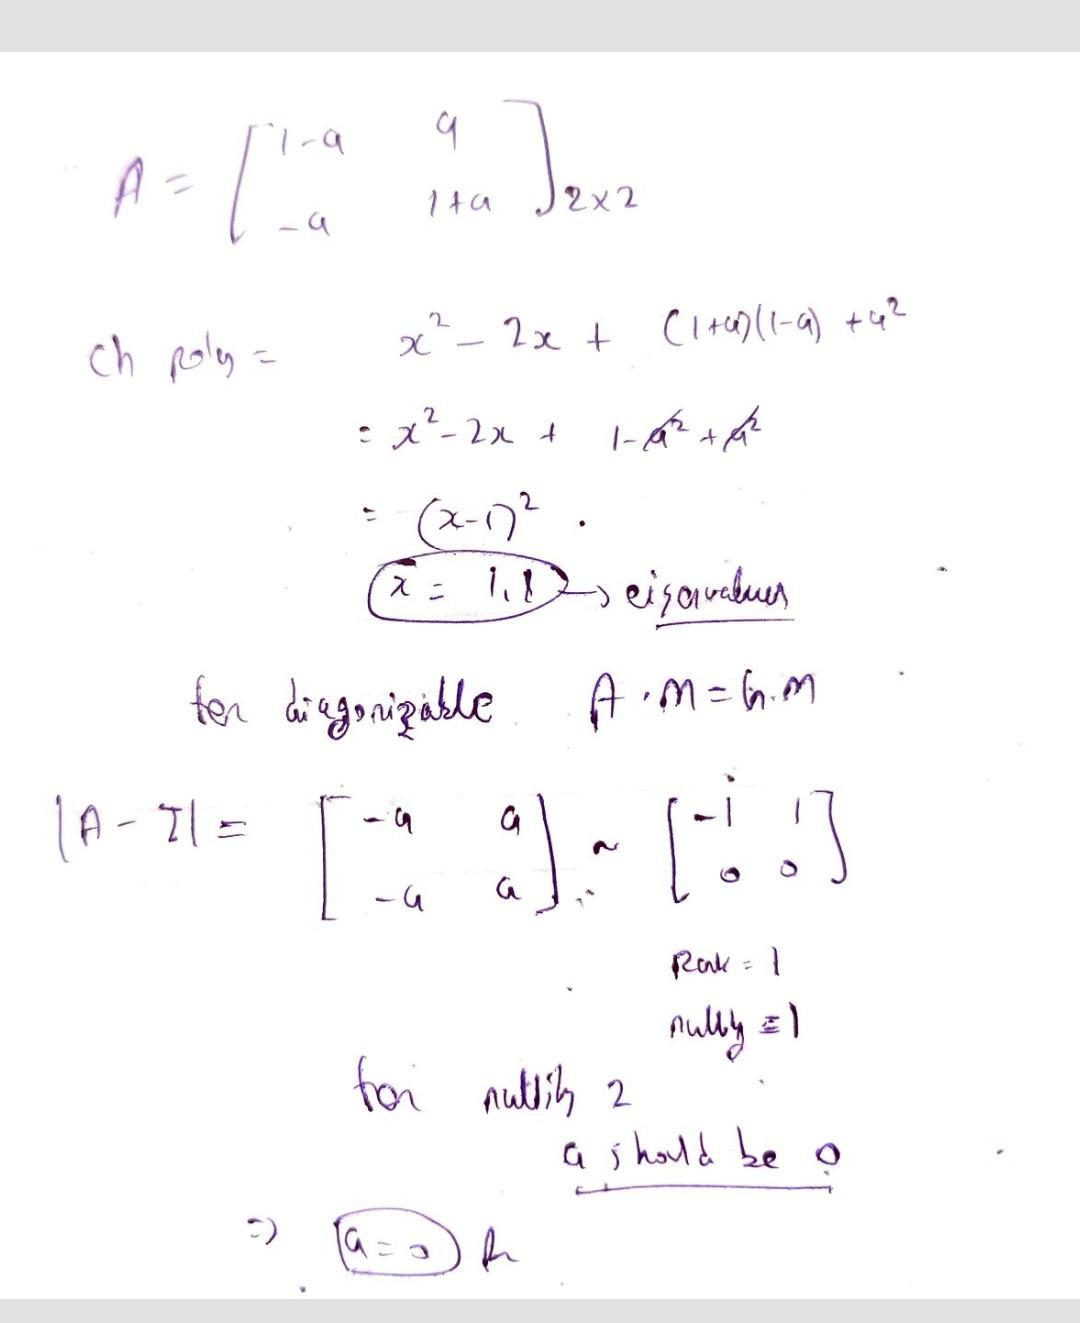 A = [ 1-a a
-a 1+a ]2×2
Ch poly = x² - 2x + (1+a)(1-a) + a²
= x² - 2x + 1 - a² + a²
= (x-1)²
x = 1, 1 → eigavalues
for diagonizable A.M = G.M
|A - I| = [ -a a
-a a ] ~ [ -1 1
0 0 ]
Rank = 1
nullity = 1
for nullity 2
a should be 0
⇒ a = 0